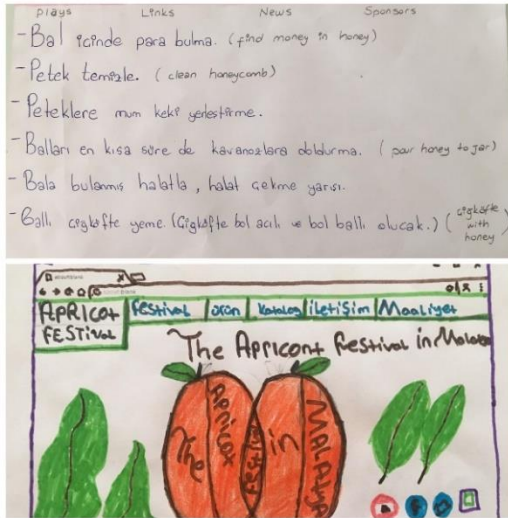 plays Links News Sponsors
- Bal içinde para bulma. (find money in honey)
- Petek temizle. (clean honeycomb)
- Peteklere mum keki yerleştirme.
- Balları en kısa süre de kavanozlara doldurma. (pour honey to jar)
- Bala bulanmış halatla, halat çekme yarışı.
- Ballı çigköfte yeme. (Çigköfte bol acılı ve bol ballı olucak.) (çigköfte with honey)
APRICOT FESTİVAL
festival ürün katalog iletişim Maaliyet
The Apricont festival in Malatya
The APRICOT FESTİVAL in MALATYA